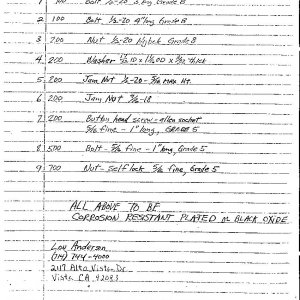 1 100 Bolt ½-20 Long Grade 8
2 100 Bolt ½-20 4" long Grade 8
3 200 Nut ½-20 Grade 8
4 200 Washer ½ ID x OD x 3/32 thick
5 200 Jam Nut ½-20 - 5/16 MAX Ht.
6 200 Jam Nut 5/16-18
7 200 Button head screw - allen socket
5/16 fine - 1" long, GRADE 5
8 500 Bolt - 5/16 fine - 1" long, Grade 5
9 700 Nut - self lock 5/16 fine, Grade 5
ALL ABOVE TO BE
CORROSION RESISTANT PLATED or BLACK OXIDE
Lou Anderson
(714) 744-4000
2117 Alta Vista Dr
Vista CA 92083